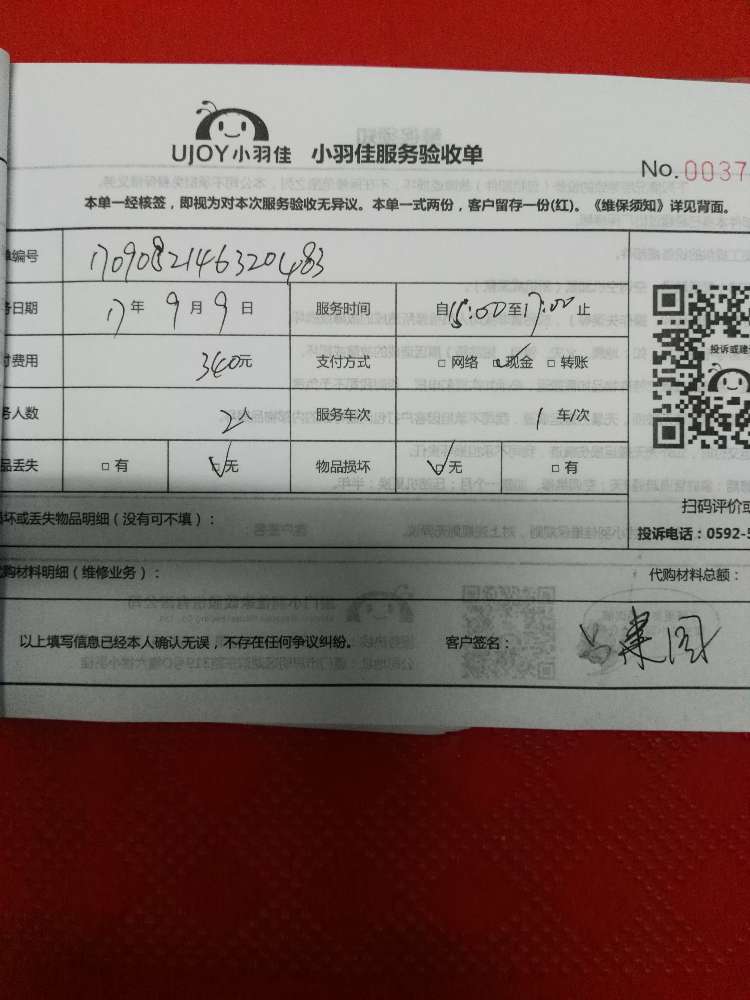 UJOY小羽佳 小羽佳服务验收单
No.0037
本单一经核签，即视为对本次服务验收无异议。本单一式两份，客户留存一份(红)。《维保须知》详见背面。
单编号 1709082146320483
务日期 17年9月9日 服务时间 自15:00至17:00止
付费用 340元 支付方式 □网络 ☑现金 □转账
务人数 2人 服务车次 1车/次
品丢失 □有 ☑无 物品损坏 ☑无 □有
投诉或建
扫码评价或
投诉电话：0592-5
损坏或丢失物品明细（没有可不填）：
代购材料明细（维修业务）： 代购材料总额：
以上填写信息已经本人确认无误，不存在任何争议纠纷。 客户签名：